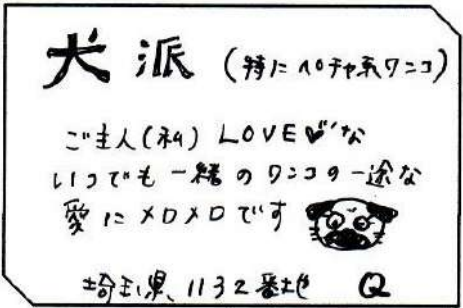 犬派 (特にペチャ系ワンコ)
ご主人(私) LOVE♥な
いつでも一緒のワンコの一途な
愛にメロメロです
埼玉県、1132番地 Q